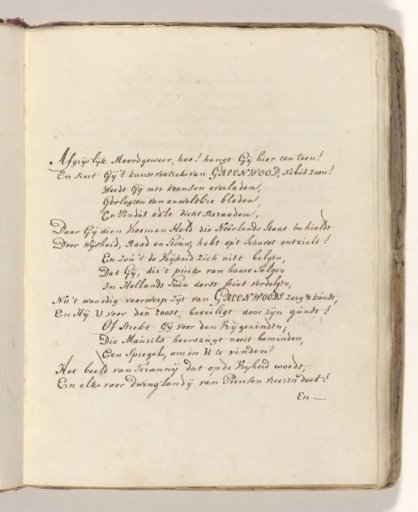 Afgrijslyk Moordgeweer, hoe! hangt Gÿ hier ten toon!
En siert Gÿ't kunst van GREENWOOD, Febus Zoon!
Werdt Gÿ met kranssen overladen,
van onwelkbre bladen,
En Pindus edle dicht
Daar Gÿ dien vromen Held die Neêrlands Staat behield
Door Wysheid, Raad en Trouw, hebt op't Schavot ontzield!
En zou't de Vryheid zich niet belgen,
Dat Gÿ, die't puik van haare Telgen
In Hollands Tuin dorst stout verdelgen,
Nu't waerdig voorwerp zyt van GREENWOODS zorg & kunst,
En Hÿ U voor den roest, beveiligt door zyn gunst!
Of strekt Gÿ voor den Vrÿgezinden,
Die Maurits heerszugt nooit beminden,
Een Spiegel, om in U te vinden
Het beeld van Tirannij dat op de Vryheid woedt,
En elk voor dwinglandÿ van Prinsen vreezen doet!
En —